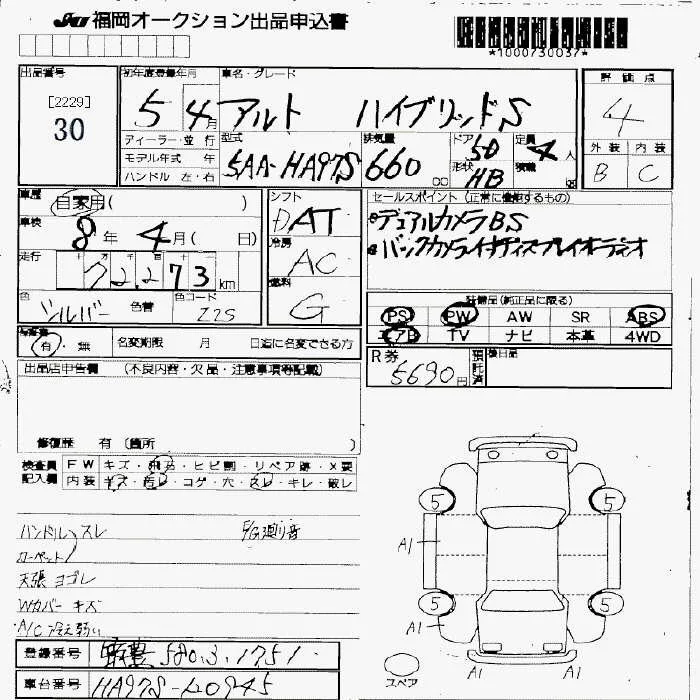 JU 福岡オークション出品申込書
*1000730037*
出品番号
[2229]
30
初年度登録年月
5 4月
車名・グレード
アルト ハイブリッドS
評価点
4
外装 内装
B C
ディーラー・並行
モデル年式 年
ハンドル 左・右
型式
5AA-HA97S
排気量
660 cc
ドア 5D
形状 HB
定員 4人
積載 kg
車歴
自家用( )
車検
8年 4月( 日)
走行
十 万 千 百 十
72,273km
色
シルバー 色替
色コード
Z2S
シフト
DAT
冷房
AC
燃料
G
セールスポイント(正常に機能するもの)
●デュアルカメラBS
●バックカメラ付ディスプレイオーディオ
装備品(純正品に限る)
PS PW AW SR ABS
エアB TV ナビ 本革 4WD
有・無 名変期限 月 日迄に名変できる方
R券
5690円
預託済
後日品
出品店申告欄 (不良内容・欠品・注意事項等記載)
修復歴 有(箇所 )
検査員記入欄
FW キズ・飛石・ヒビ割・リペア跡・X要
内装 キズ・汚レ・コゲ・穴・スレ・キレ・破レ
ハンドル スレ E/G廻り音
カーペット
天張 ヨゴレ
Wカバー キズ
A/C冷え弱い
登録番号
580 . 1751
車台番号
HA97S-40945
5 5
A1 A1
5 5
A1
スペア A1 A1